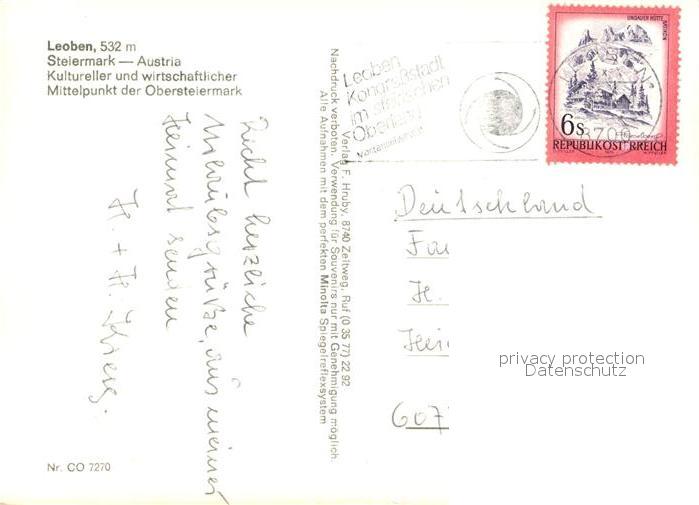 Leoben, 532 m
Steiermark — Austria
Kultureller und wirtschaftlicher
Mittelpunkt der Obersteiermark
Recht herzliche
Urlaubsgrüße, aus meiner
Heimat senden
H. + H.
Nr. CO 7270
Verlag F. Hruby, 8740 Zeltweg, Ruf (0 35 77) 22 92
Nachdruck verboten. Verwendung für Souvenirs nur mit Genehmigung möglich.
Alle Aufnahmen mit dem perfekten Minolta Spiegelreflexsystem
Leoben
Kongreßstadt
im steirischen
Oberland
LINDAUER HÜTTE
6s
REPUBLIK ÖSTERREICH
Deutschland
H.
607
privacy protection
Datenschutz